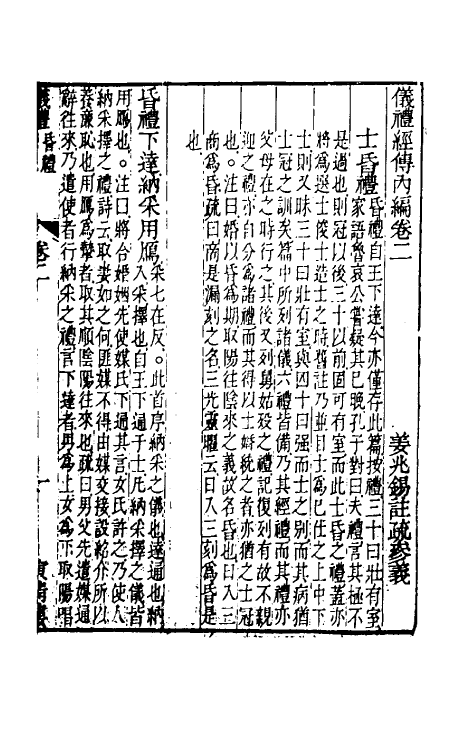 儀禮經傳內編卷二
姜兆錫註疏參義
士昏禮昏禮自王下達今亦僅存此篇按禮三十曰壯有室
家語魯哀公嘗疑其已晚孔子對曰夫禮言其極不
是過也則冠以後三十以前固可有室而此士昏之禮蓋亦
將為選士俊士造士之時舊註乃並目士為已仕之上中下
士則又昧三十曰壯有室與四十曰强而士之别而其病猶
士冠之訓矣篇中所列諸儀六禮皆備乃其經禮而其禮亦
父母在之時行之其後又列舅姑殁之禮記復列有故不親
迎之禮亦自分為諸禮而其得以士昏統之者亦猶之士冠
也注曰婚以昏為期取陽往陰來之義故名昏也日入三
商為昏疏曰商是漏刻之名三光靈曜云日入三刻為昏是
也
昏禮下達納采用鴈采七在反。此首序納采之儀也達通也納
入采擇也自王下通于士凡納采擇之儀皆
用鴈也。注曰將合婚姻先使媒氏下通其言女氏許之乃使人
納采擇之禮詩云取妻如之何匪媒不得由媒交接設紹介所以
養廉恥也用鴈為摯者取其順陰陽往來也疏曰男父先遣媒通
辭往來乃遣使者行納采之禮言下達者男為上女為下取陽唱
儀禮 昏禮
卷二
一
寅清樓